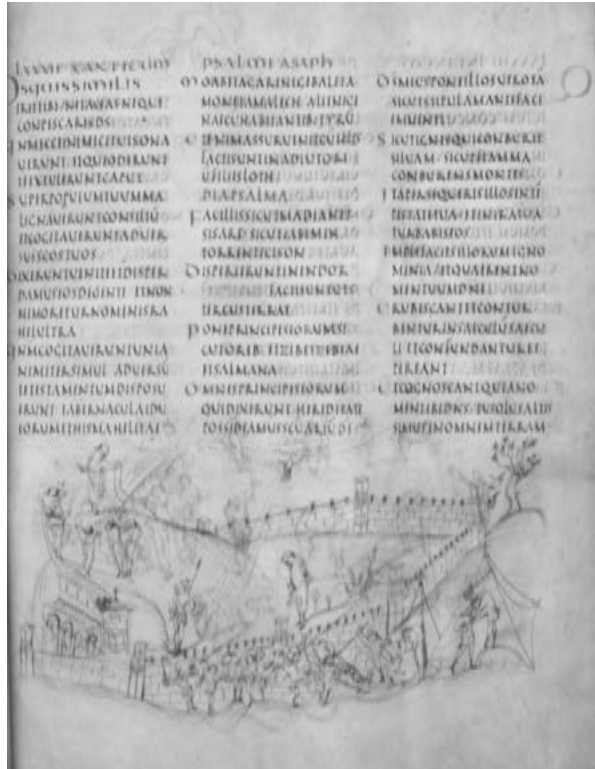 LXXXII CANTICUM PSALMI ASAPH
DSQUISSIMILIS
ERITTIBI NETACEASNEQUE
CONPISCARISDS
QNMECCEINIMICITUISONA
UERUNT ETQUIODERUNT
TEEXTULERUNTCAPUT
SUPERPOPULUMTUUMMA
LIGNAUERUNTCONSILIŪ
ETCOGITAUERUNTADUER
SUSSCOSTUOS
DIXERUNTUENITEETDISPER
DAMUSEOSDEGENTE ETNON
MEMORETURNOMENISRA
HELULTRA
QNMCOGITAUERUNTUNIA
NIMITERSIMUL ADUERSŪ
TETESTAMENTUMDISPOSU
ERUNT TABERNACULAIDU
MEORUMETHISMAHELITAE
MOABETAGARENIGEBALETA
MONETAMALECH ALIENIGE
NAECUMHABITANTIBTYRŪ
ETENIMASSURUENITCUILLIS
FACTISUNTINADIUTORI
UFILIISLOTH
DIAPSALMA
FACILLISSICUTMADIANET
SISARE SICUTIABININ
TORRENTECISON
DISPERIERUNTINENDOR
FACTISUNTUTS
TERCUSTERRAE
PONEPRINCIPESEORUMSI
CUTOREB ETZEBETZEBEAE
ETSALMANA
OMNESPRINCIPESEORUM
QUIDIXERUNT HEREDITATE
POSSIDEAMUSSCUARIŪDI
DSMEUSPONEILLOSUTROTĀ
SICUTSTIPULAMANTEFACI
EMUENTI
SICUTIGNISQUICONBURIT
SILUAM SICUTFLAMMA
CONBURENSMONTES
ITAPERSEQUERISILLOSINTE
PESTATETUA ETINIRATUA
TURBABISEOS
IMPLEFACIESILLORUMIGNO
MINIA ETQUAERENTNO
MENTUUMDNE
ERUBISCANTETCONTUR
BENTURINSAECULŪSAECU
LI ETCONFUNDANTURET
PEREANT
ETCOGNOSCANTQUIANO
MENTIBIDNS TUSOLUSALTIS
SIMUSINOMNEMTERRAM